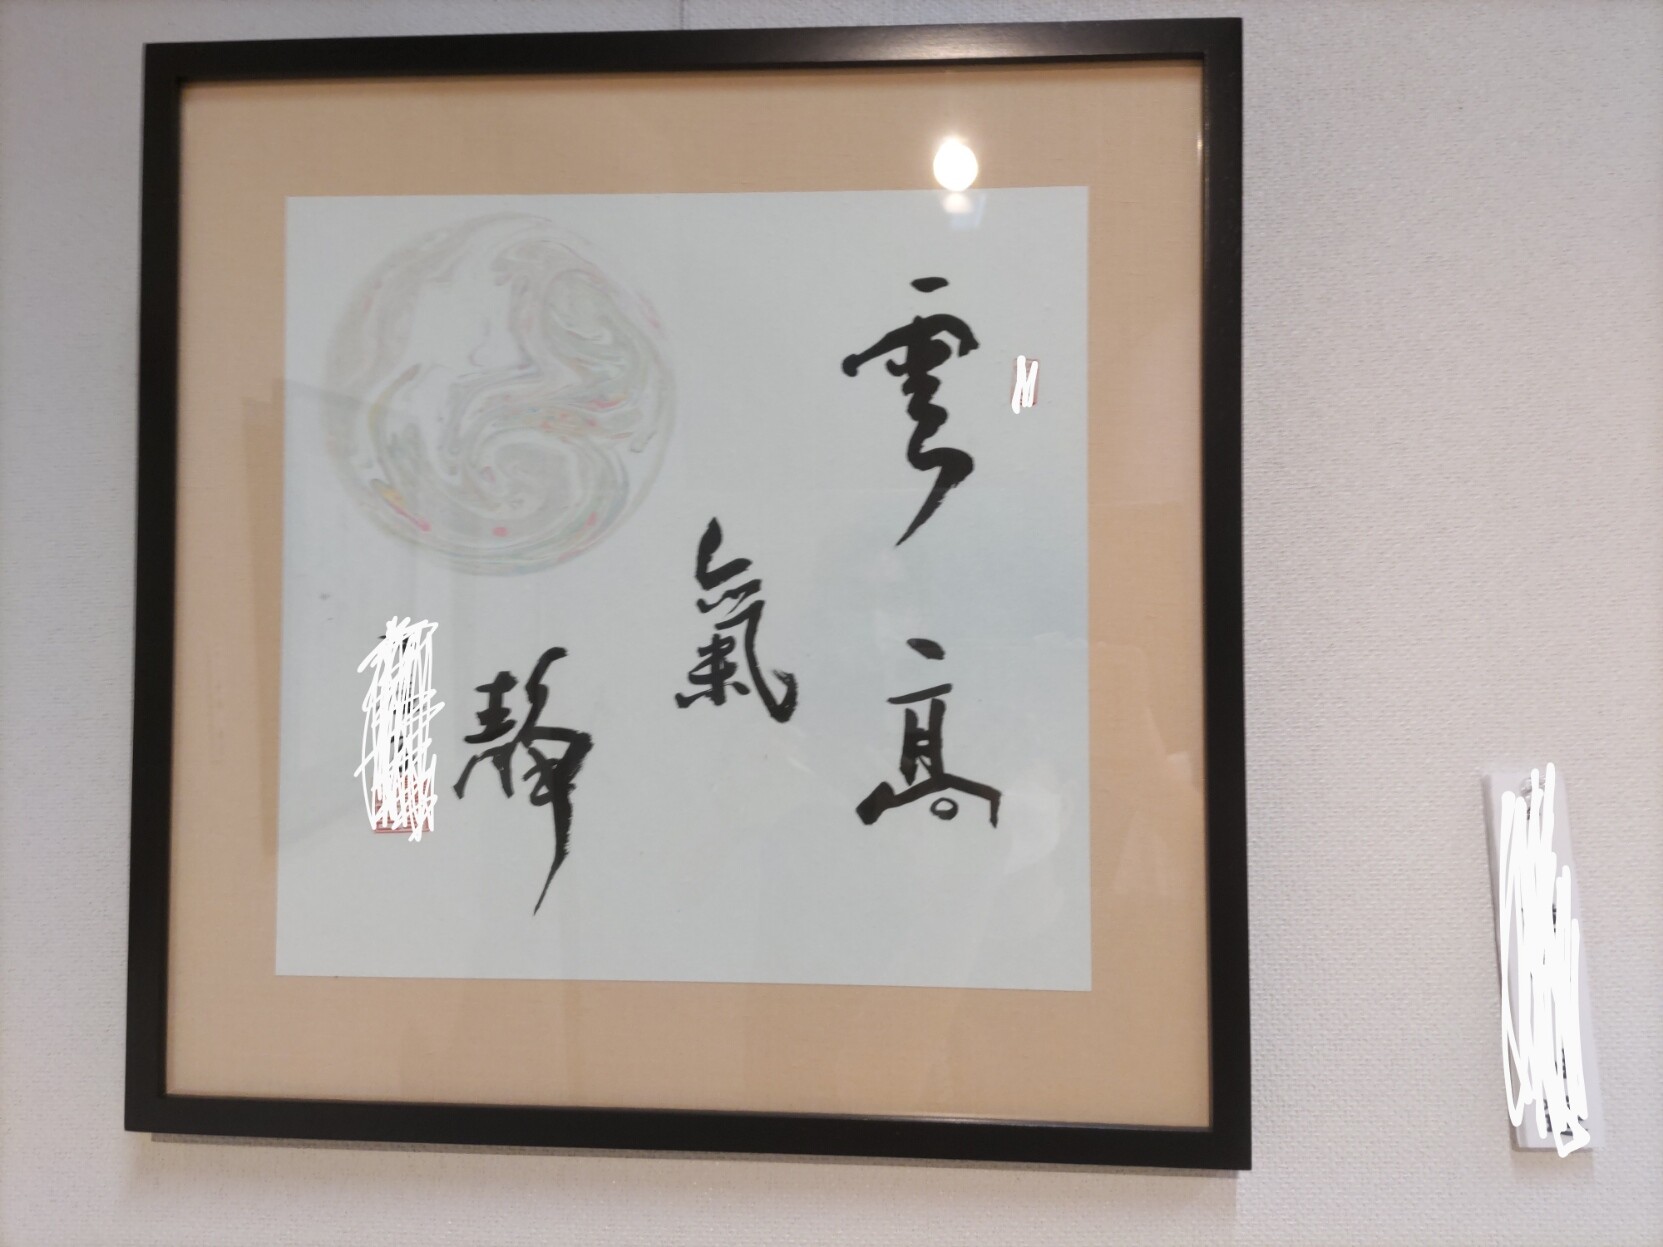 雲高
氣
靜